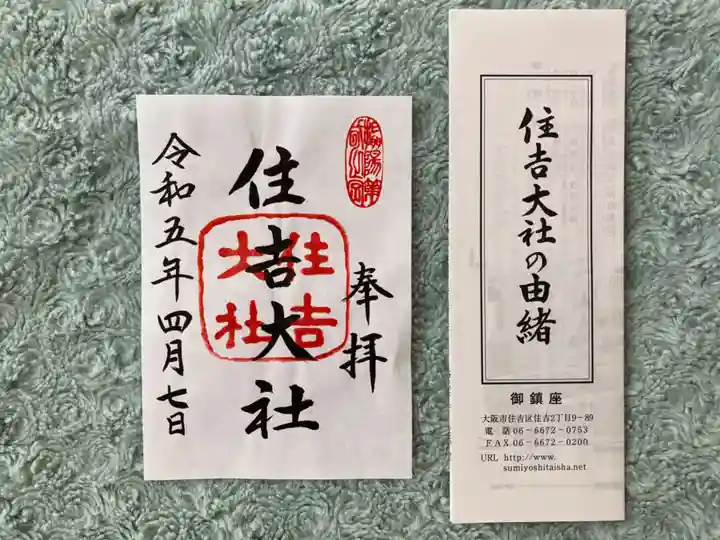 奉拝
住吉大社
住吉
大社
令和五年四月七日
住吉大社の由緒
御鎮座
大阪市住吉区住吉2丁目9－89
電 話 06－6672－0753
FAX 06－6672－0200
URL http://www.
sumiyoshitaisha.net